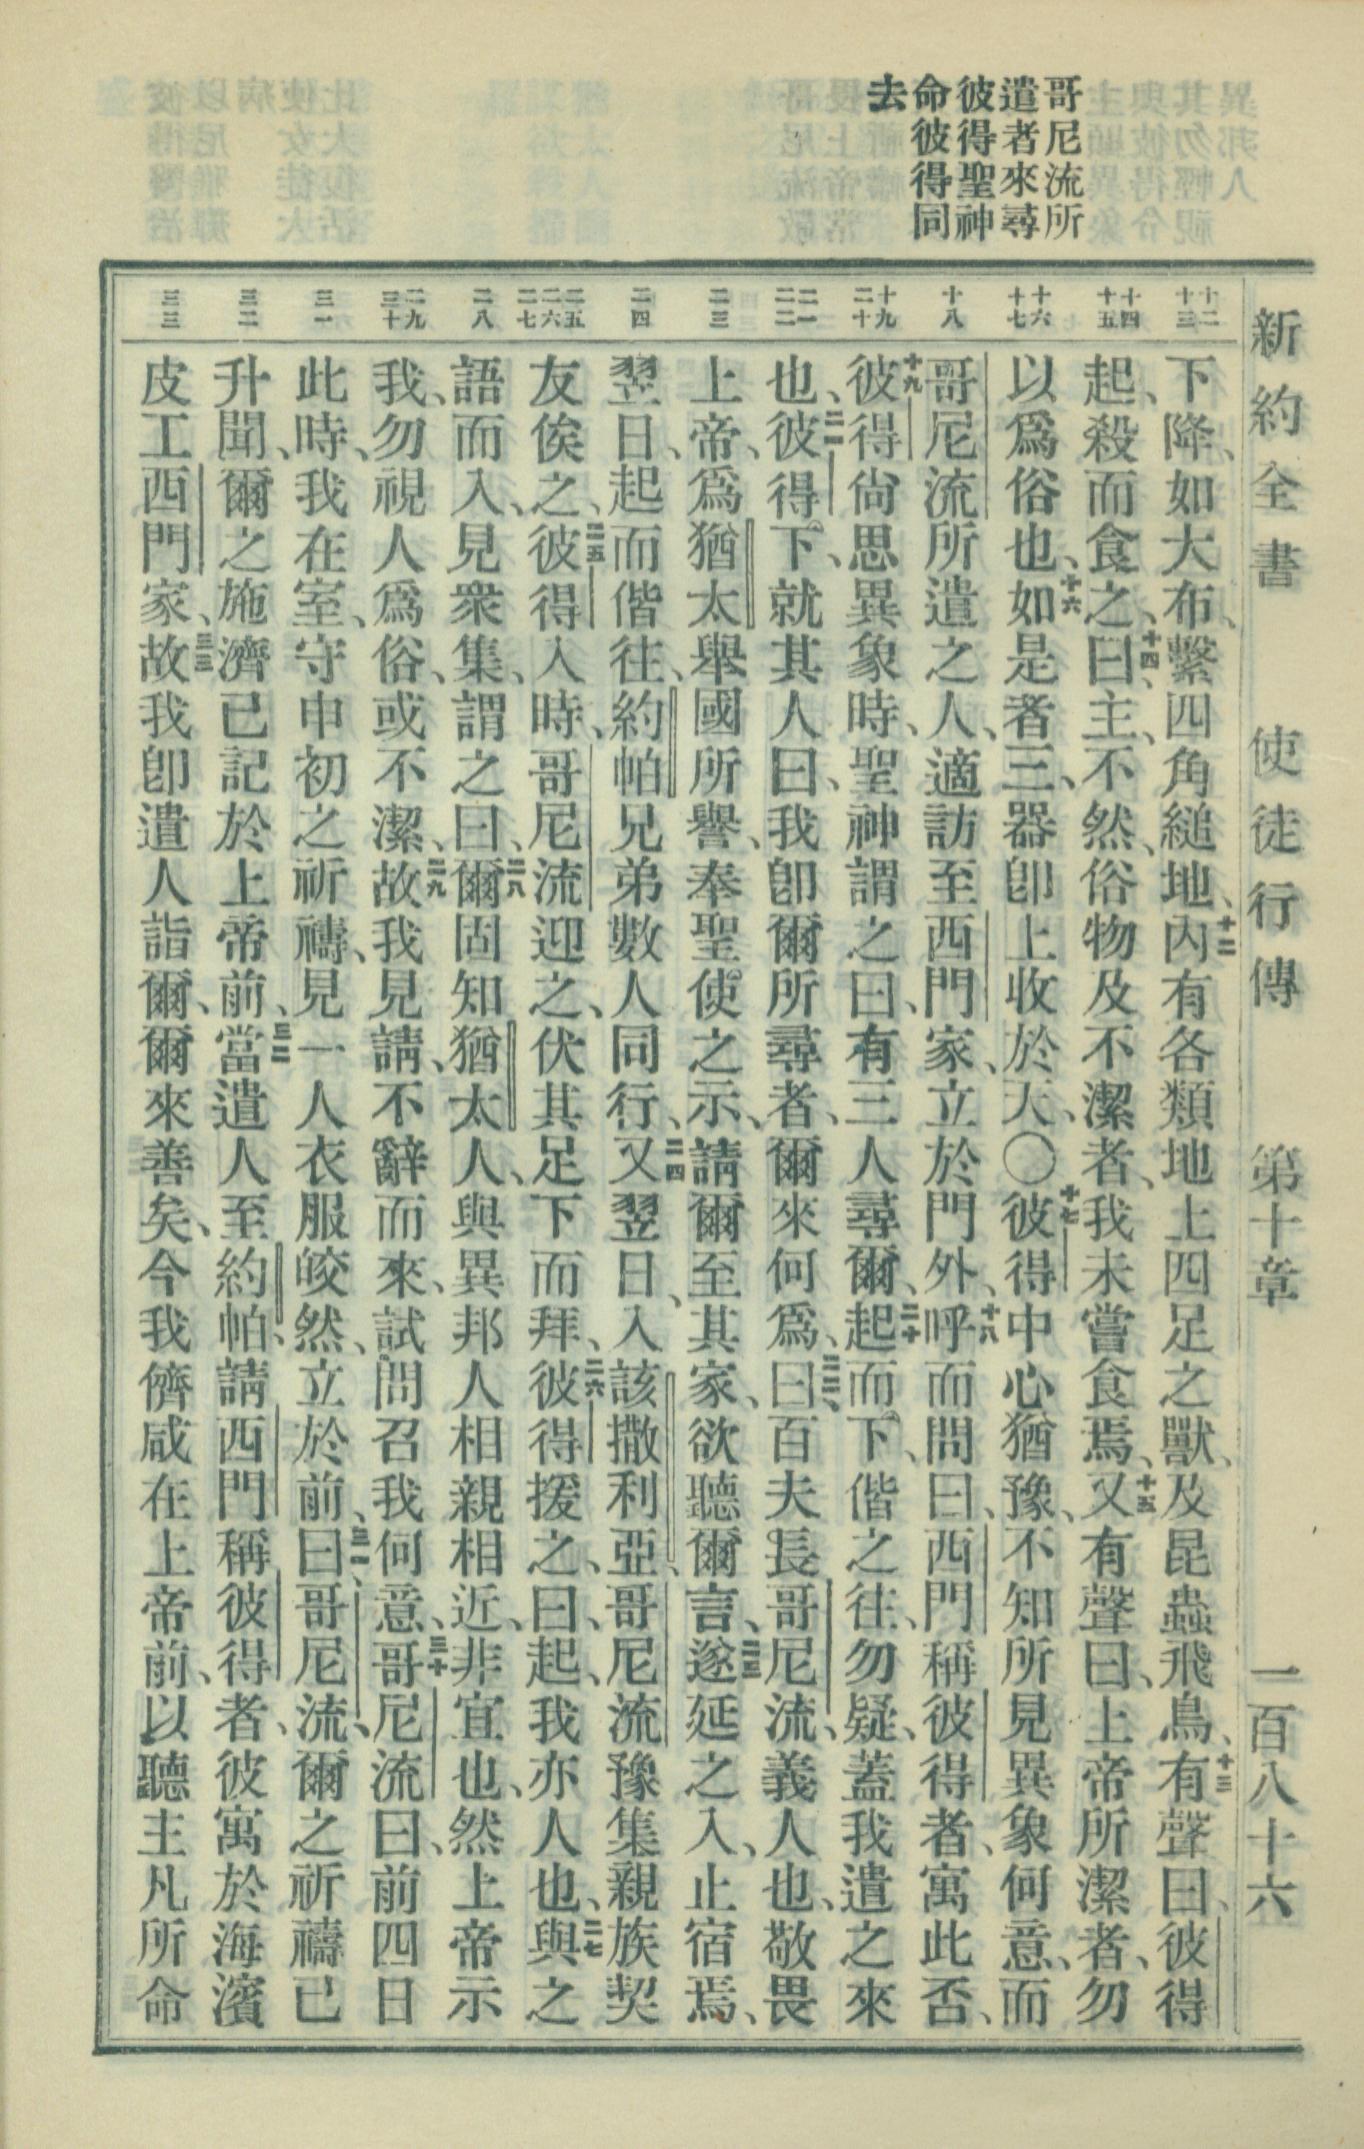 哥尼流所
遣者來尋
彼得聖神
命彼得同
去
新約全書 使徒行傳 第十章 一百八十六
十二 十三
十四 十五
十六 十七
十八
十九 二十
二一 二二
二三
二四
二五 二六 二七
二八
二九 三十
三一
三二
三三
下降、如大布、繫四角縋地、十二內有各類地上四足之獸、及昆蟲飛鳥、十三有聲曰、彼得
起、殺而食之、十四曰、主、不然、俗物及不潔者、我未嘗食焉、十五又有聲曰、上帝所潔者、勿
以爲俗也、十六如是者三、器卽上收於天、〇十七彼得中心猶豫、不知所見異象何意、而
哥尼流所遣之人、適訪至西門家、立於門外、十八呼而問曰、西門稱彼得者、寓此否、
十九彼得尙思異象時、聖神謂之曰、有三人尋爾、二十起而下、偕之往、勿疑、蓋我遣之來
也、二一彼得下、就其人曰、我卽爾所尋者、爾來何爲、二二曰、百夫長哥尼流、義人也、敬畏
上帝、爲猶太舉國所譽、奉聖使之示、請爾至其家、欲聽爾言、二三遂延之入、止宿焉、
翌日、起而偕往、約帕兄弟數人同行、二四又翌日、入該撒利亞、哥尼流豫集親族契
友俟之、二五彼得入時、哥尼流迎之、伏其足下而拜、二六彼得援之、曰、起、我亦人也、二七與之
語而入、見衆集、謂之曰、二八爾固知猶太人、與異邦人相親相近、非宜也、然上帝示
我、勿視人爲俗、或不潔、二九故我見請、不辭而來、試問召我何意、三十哥尼流曰、前四日
此時、我在室、守申初之祈禱、見一人衣服皎然、立於前、三一曰、哥尼流、爾之祈禱已
升聞、爾之施濟已記於上帝前、三二當遣人至約帕、請西門稱彼得者、彼寓於海濱
皮工西門家、三三故我卽遣人詣爾、爾來善矣、今我儕咸在上帝前、以聽主凡所命